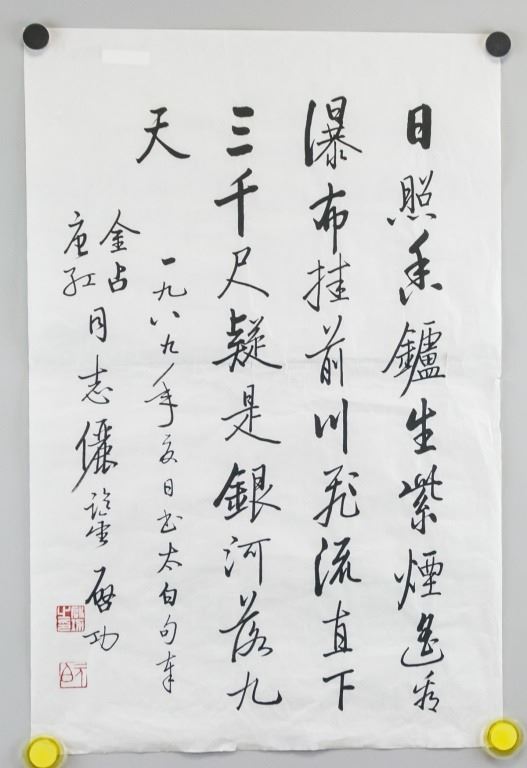 日照香鑪生紫煙遙看
瀑布挂前川飛流直下
三千尺疑是銀河落九
天
一九八九年夏日書太白句奉
金占
唐红
同志儷鑒 启功